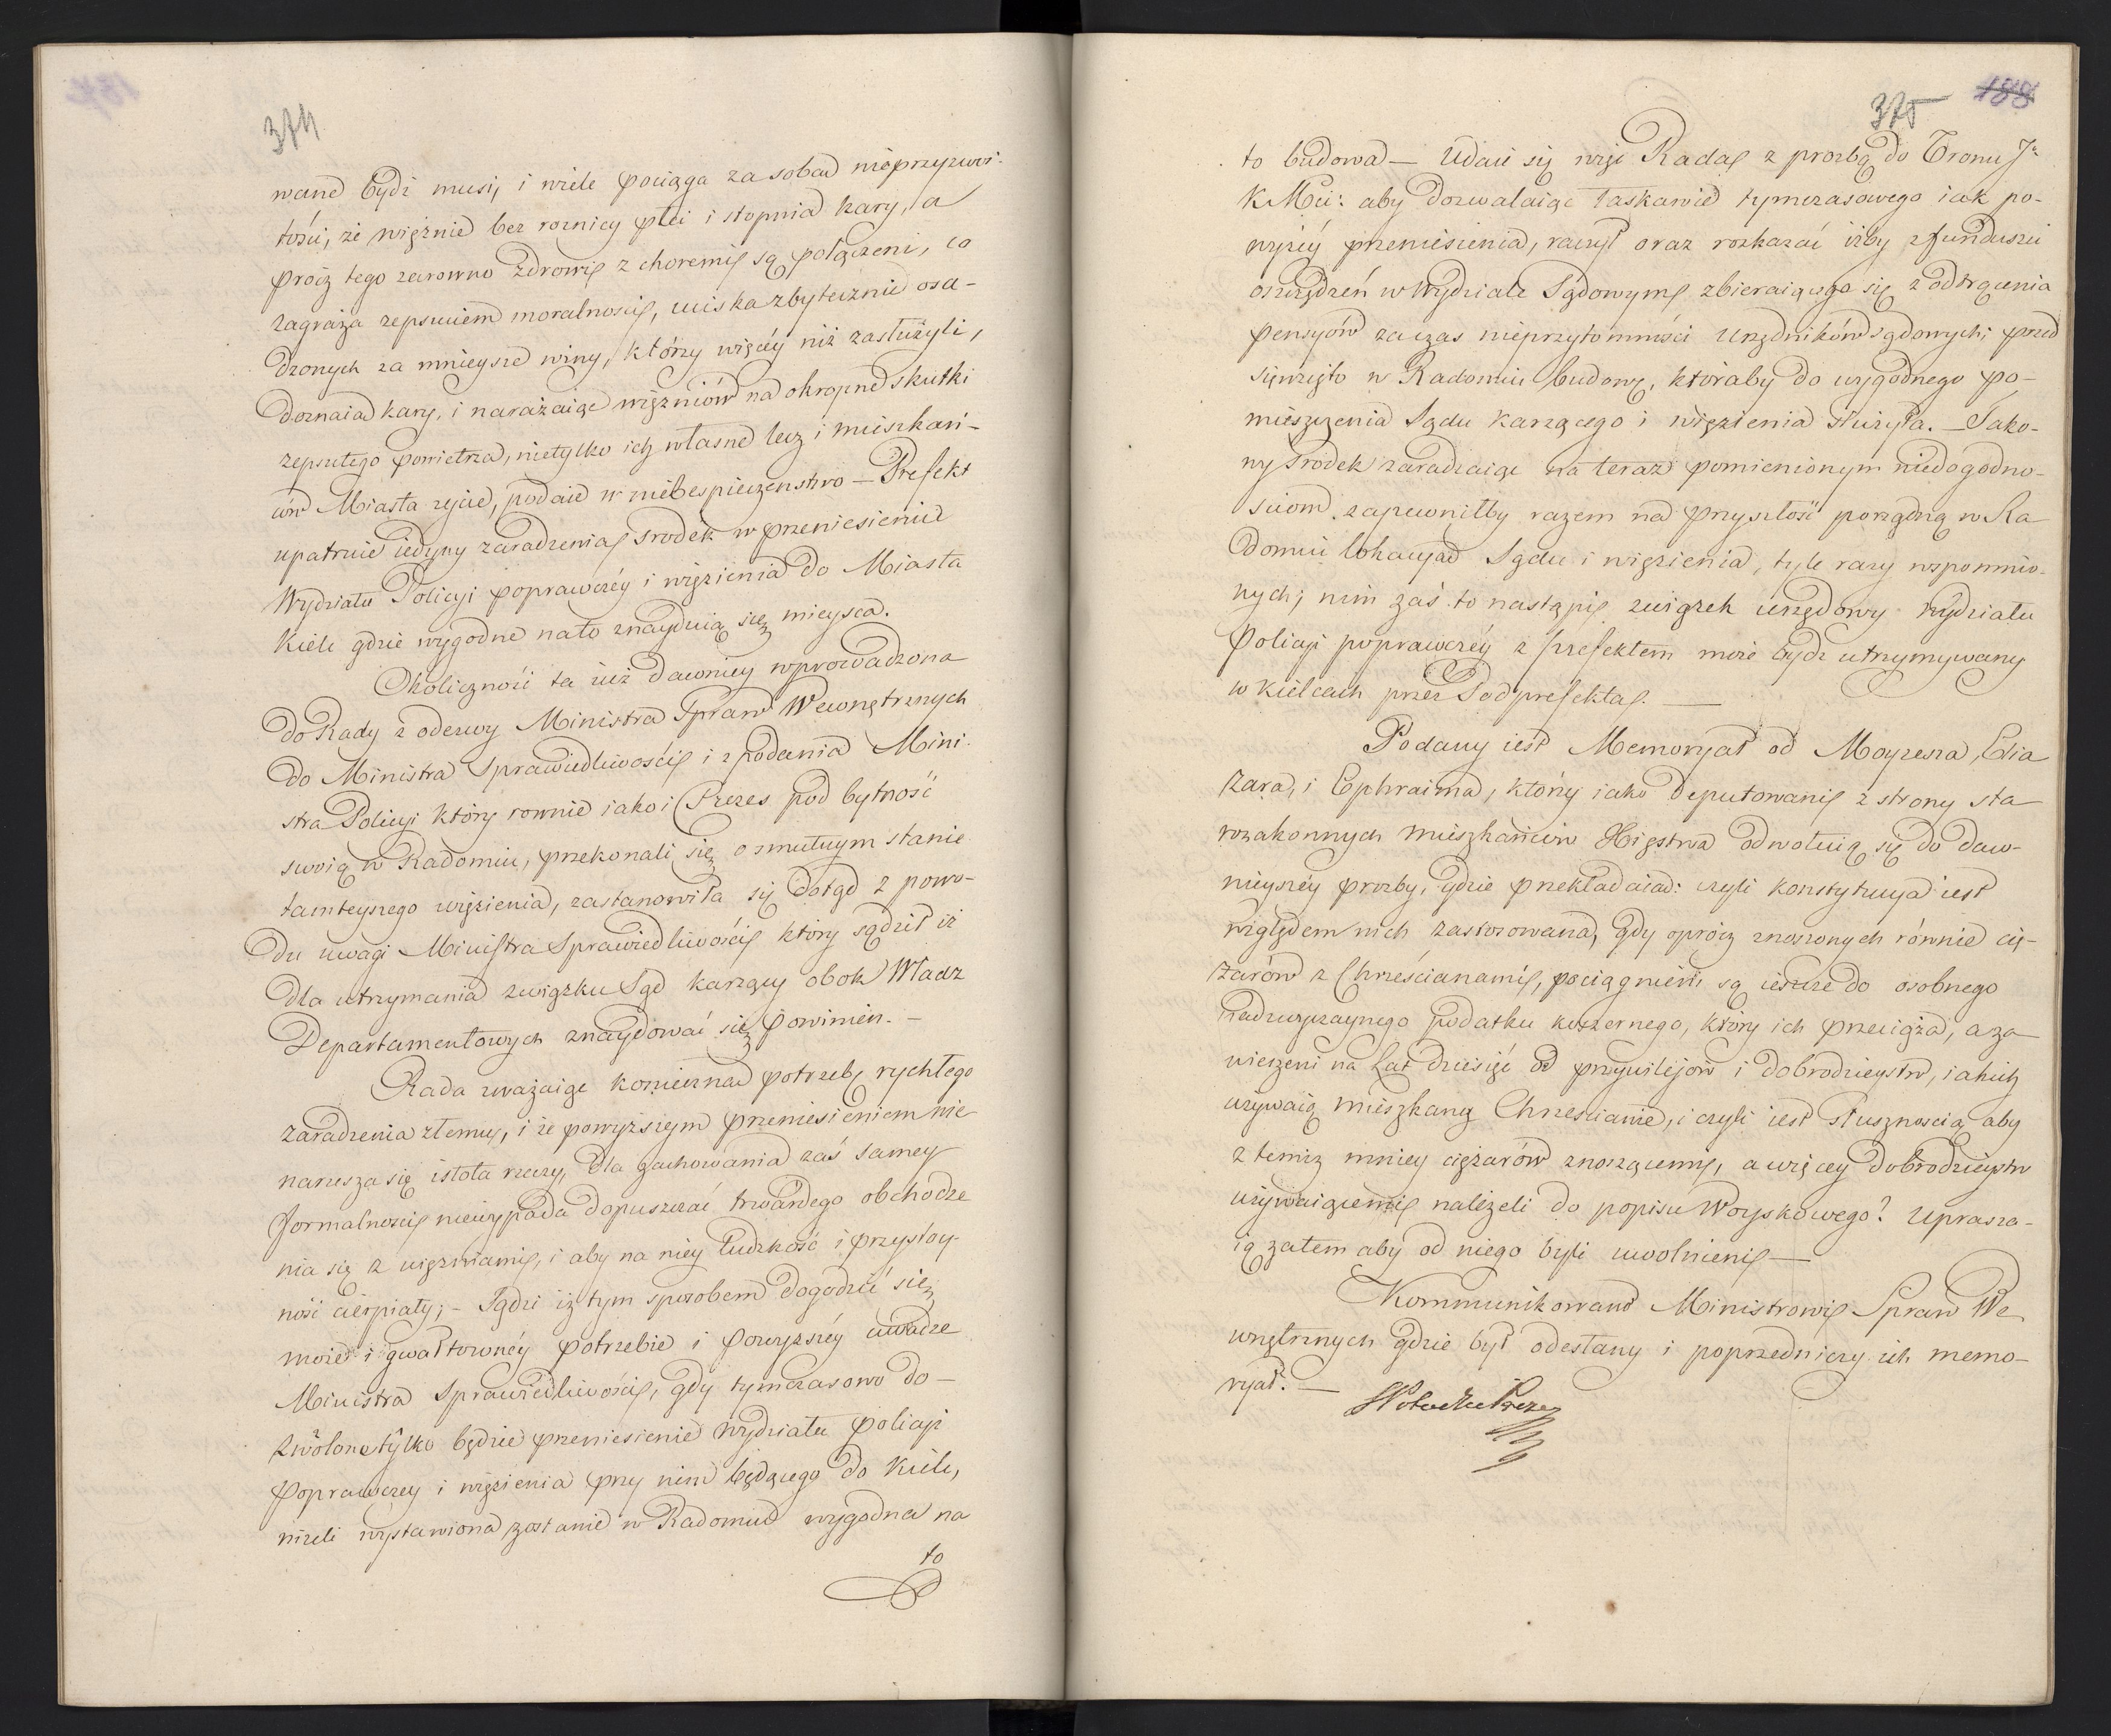 374
wane bydź musi, i wiele pociąga za sobą nieprzyzwoi-
tości, że więźnie bez roznicy płci i stopnia kary, a
prócz tego zarowno zdrowi z choremi są połączeni, co
zagraża zepsuciem moralności, uciska zbytecznie osa-
dzonych za mnieysze winy, którzy więcéy niż zasłużyli,
doznaią kary, i narażaiąc więzniów na okropne skutki
zepsutego powietrza, nietylko ich własne lecz i mieszkań-
ców Miasta życie, podaie w niebespieczenstwo — Prefekt
upatruie iedyny zaradzenia srodek w przeniesieniu
Wydziału Policyi poprawczéy i więzienia do Miasta
Kielc gdzie wygodne nato znayduią się mieysca.
Okoliczność ta iuż dawniey wprowadzona
do Rady z odezwy Ministra Spraw Wewnętrznych
do Ministra Sprawiedliwości i z podania Mini-
stra Policyi który rownie iako i Prezes pod bytność
swoią w Radomiu, przekonali się o smutnym stanie
tamteyszego więzienia, zastanowiła się dotąd z powo-
du uwagi Ministra Sprawiedliwości który sądził iż
dla utrzymania związku Sąd karzący obok Władz
Departamentowych znaydować się powinien. —
Rada zważaiąc konieczną potrzebę rychłego
zaradzenia złemu, i że powyższym przeniesieniem nie
narusza się istota rzeczy, dla zachowania zaś samey
formalności niewypada dopuszczać twardego obchodze
nia się z więzniami, i aby na niey ludzkość i przystoy-
ność cierpiały; — Sądzi iż tym sposobem dogodzić się
może i gwałtownéy potrzebie i powyższéy uwadze
Ministra Sprawiedliwości, gdy tymczasowo do-
zwolone tylko będzie przeniesienie Wydziału Policyi
Poprawczey i więzienia przy nim będącego do Kielc,
nizeli wystawiona zostanie w Radomiu wygodna na
to
375 188
to budowa — Udaie się więc Rada z prozbą do Tronu J:
K Mci: aby dozwalaiąc łaskawie tymczasowego iak po-
wyżéy przeniesienia, raczył oraz rozkazać iżby z funduszu
oszczędzeń w Wydziale Sądowym zbieraiącego się z odtrącenia
pensyów za czas nieprzytomności Urzędników sądowych; przed
sięwzięto w Radomiu budowę, któraby do wygodnego po-
mieszczenia Sądu karzącego i więzienia służyła. — Tako-
wy srodek zaradzaiąc na teraz pomienionym niedogodno-
sciom zapewniłby razem na przyszłość porządną w Ra
domiu lokacyą Sądu i więzienia, tyle razy wspomnio-
nych; nim zaś to nastąpi związek urzędowy Wydziału
Policyi poprawczéy z prefektem może bydź utrzymywany
w Kielcach przez Podprefekta. —
Podany iest Memoryał od Moyzesza, Elia
zara, i Ephraima, który iako Deputowani z strony sta
rozakonnych mieszkańców Xięstwa odwołuią się do daw-
nieyszéy prozby, gdzie przekładaią: czyli konstytucya iest
względem nich zastosowana, gdy oprócz znoszonych równie cię-
żarów z Chrześcianami, pociągnieni są ieszcze do osobnego
nadzwyczaynego podatku koszernego, który ich przeciąża, a za
wieszeni na Lat dziesięć od przywilejów i dobrodzieystw, iakich
używaią mieszkańcy Chrzescianie, i czyli iest słusznoscią aby
z temiż mniey ciężarów znoszącemi, a więcey dobrodzieystw
używaiącemi należeli do popisu Woyskowego? Uprasza-
ią zatem aby od niego byli uwolnieni —
Kommunikowano Ministrowi Spraw We
wnętrznych gdzie był odesłany i poprzedniczy ich memo-
ryał. —
SPotocki Prezes